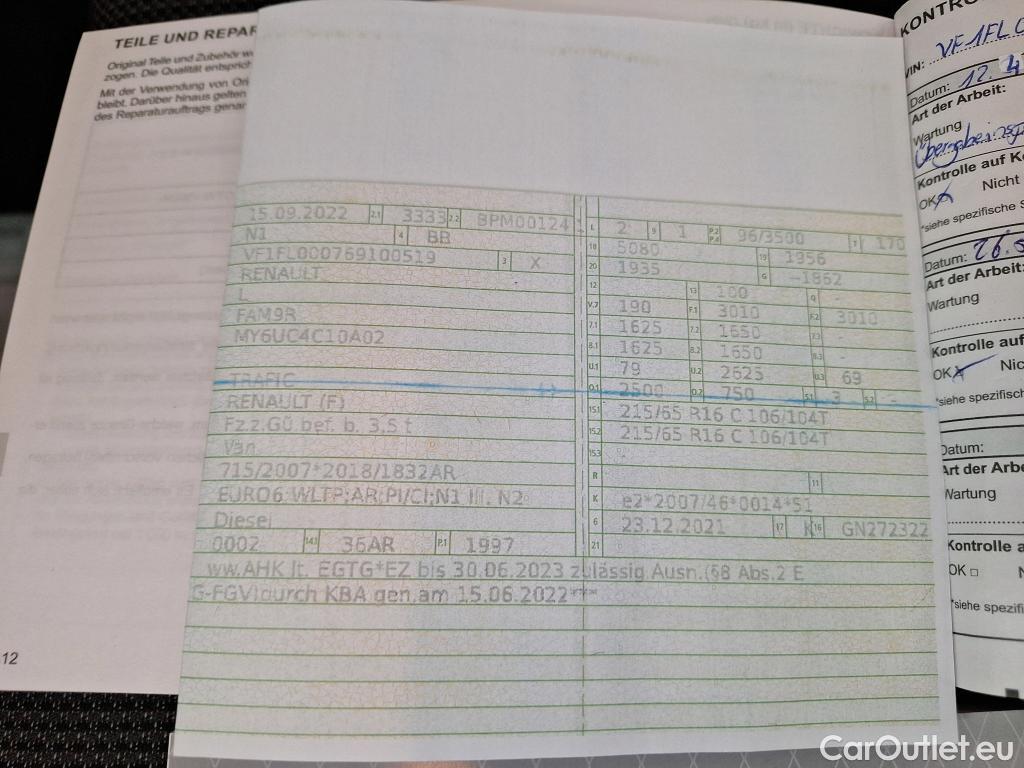 TEILE UND REPAR
Original Teile und Zubehör w
zogen. Die Qualität entsprich
Mit der Verwendung von Ori
bleibt. Darüber hinaus gelten
des Reparaturauftrags genan
12
15.09.2022 2.1 3333 2.2 BPM00124
N1 4 BB
VF1FL000769100519 3 X
RENAULT
L
FAM9R
MY6UC4C10A02
TRAFIC
RENAULT (F)
Fz.z.Gü.bef. b. 3,5 t
Van
715/2007*2018/1832AR
EURO6 WLTP;AR;PI/CI;N1 III, N2
Diesel
0002 14.1 36AR P.1 1997
L 2 9 1 P.2 P.4 96/3500 T 170
18 5080 19 1956
20 1935 G -1862
12 13 100 Q -
V.7 190 F.1 3010 F.2 3010
7.1 1625 7.2 1650 7.3 -
8.1 1625 8.2 1650 8.3 -
U.1 79 U.2 2625 U.3 69
O.1 2500 O.2 750 S.1 3 S.2 -
15.1 215/65 R16 C 106/104T
15.2 215/65 R16 C 106/104T
15.3 -
R 11
K e2*2007/46*0014*51
6 23.12.2021 17 K 16 GN272322
21
ww.AHK lt. EGTG*EZ bis 30.06.2023 zulässig Ausn.(§8 Abs.2 E
G-FGV)durch KBA gen.am 15.06.2022***
KONTRO
VIN: VF1FL0
Datum: 12.4
Art der Arbeit:
Wartung
Kontrolle auf Ko
OK Nicht
*siehe spezifische S
Datum: 26.
Art der Arbeit:
Wartung
Kontrolle auf
OK Nic
*siehe spezifisch
Datum:
Art der Arbei
Wartung
Kontrolle a
OK
*siehe spezifi
CarOutlet.eu